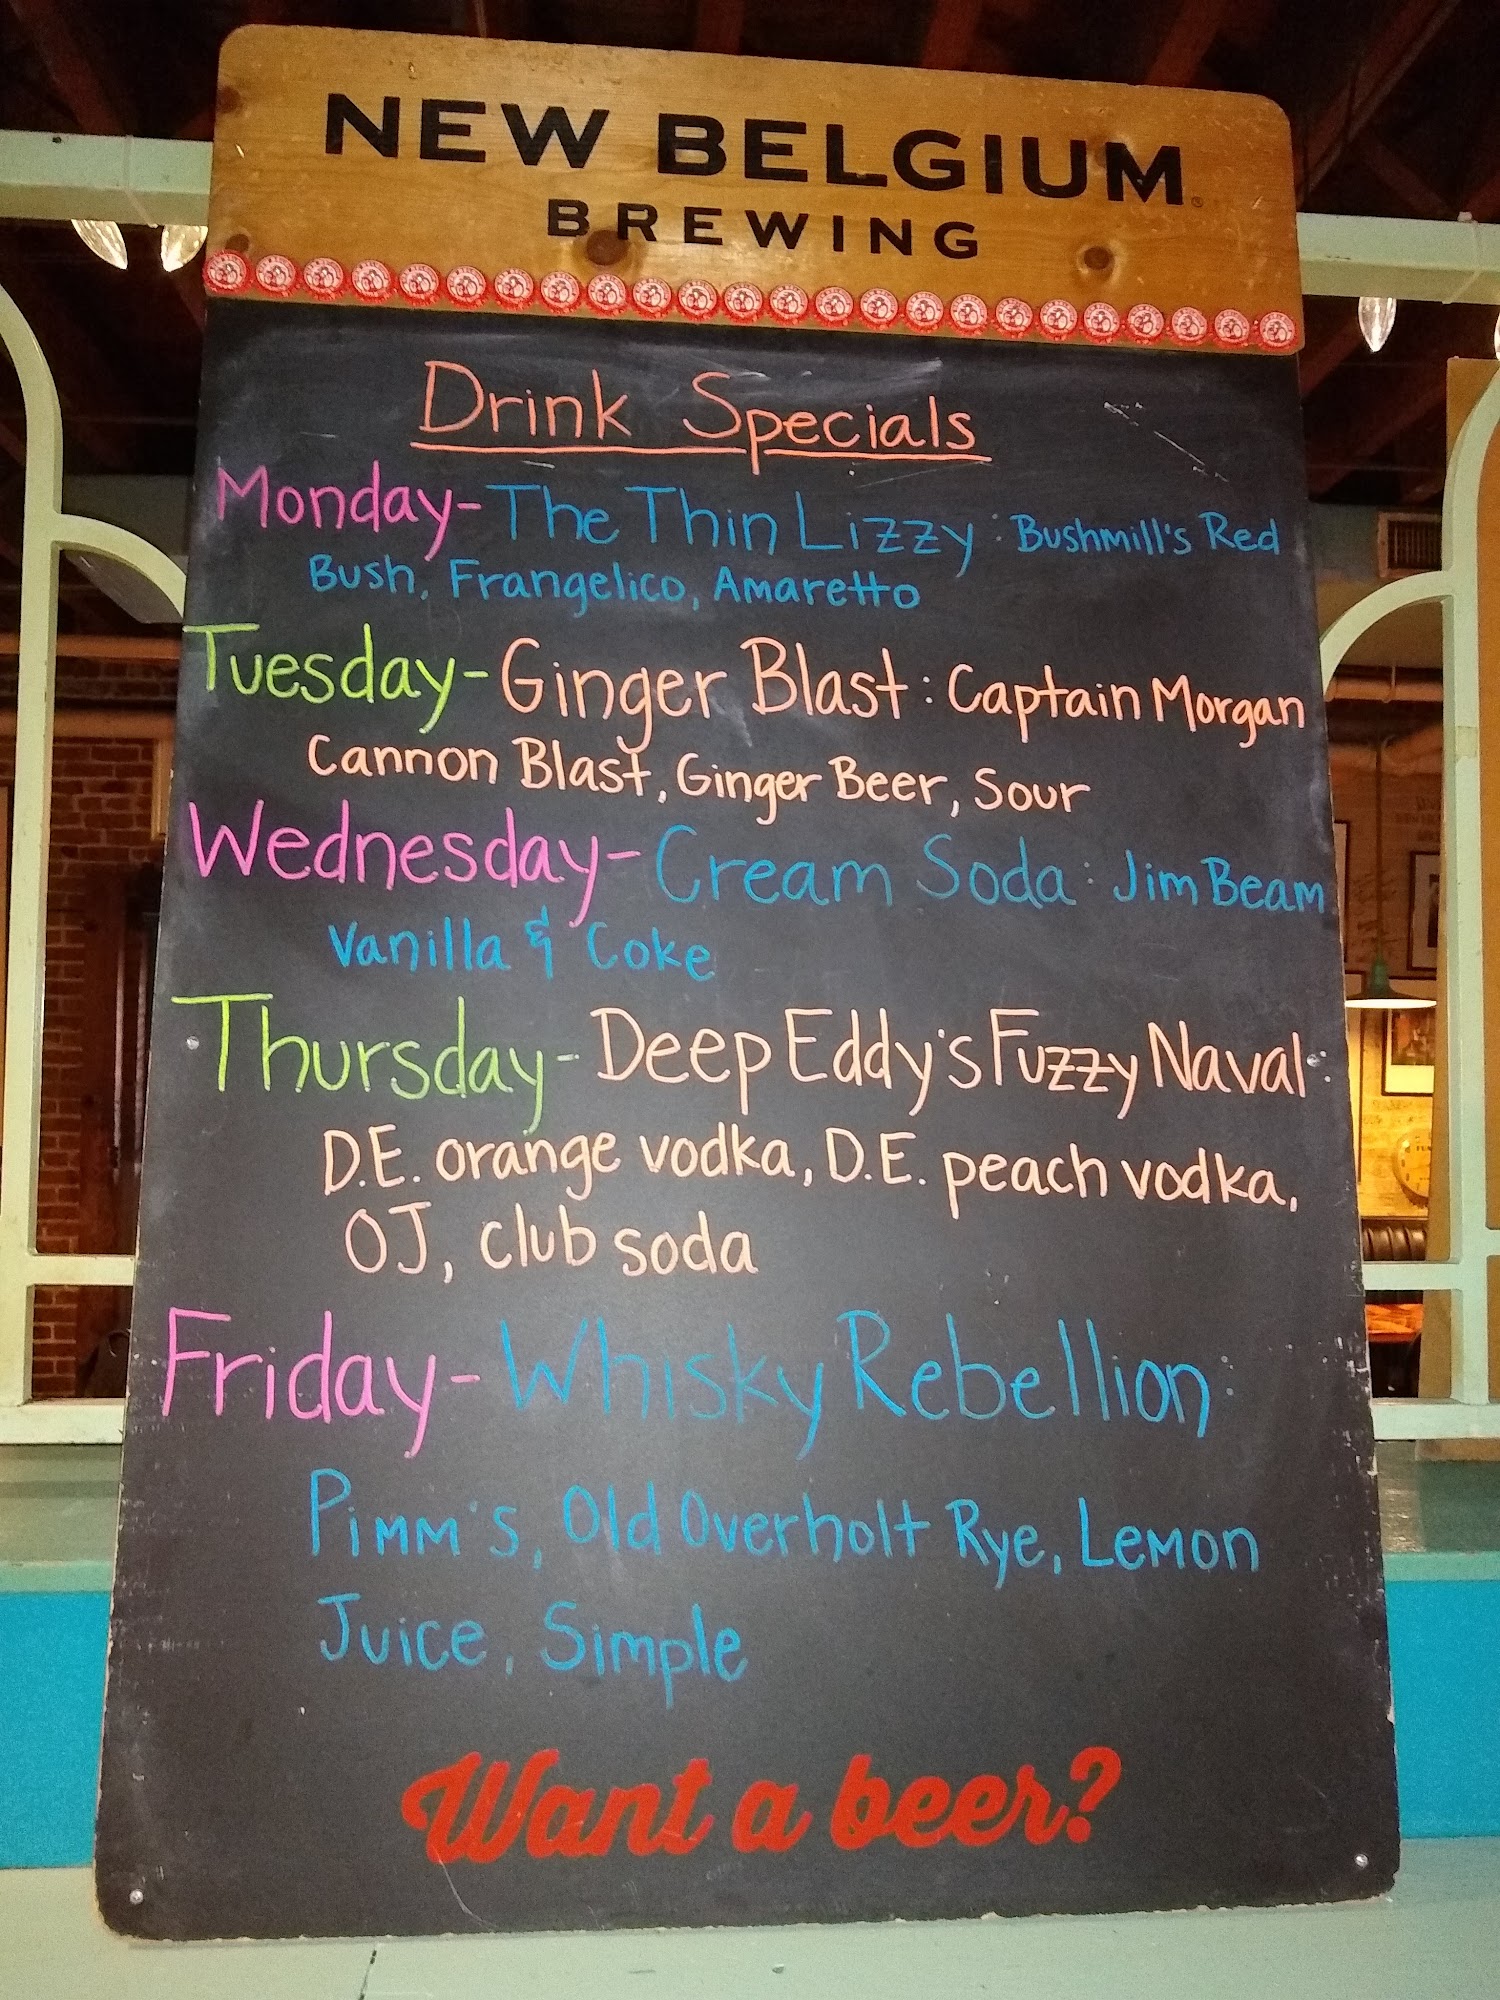 NEW BELGIUM
BREWING
Drink Specials
Monday- The Thin Lizzy: Bushmill's Red
Bush, Frangelico, Amaretto
Tuesday- Ginger Blast: Captain Morgan
Cannon Blast, Ginger Beer, Sour
Wednesday- Cream Soda: Jim Beam
Vanilla & Coke
Thursday- Deep Eddy's Fuzzy Naval:
D.E. orange vodka, D.E. peach vodka,
OJ, club soda
Friday- Whisky Rebellion:
Pimm's, Old Overholt Rye, Lemon
Juice, Simple
Want a beer?